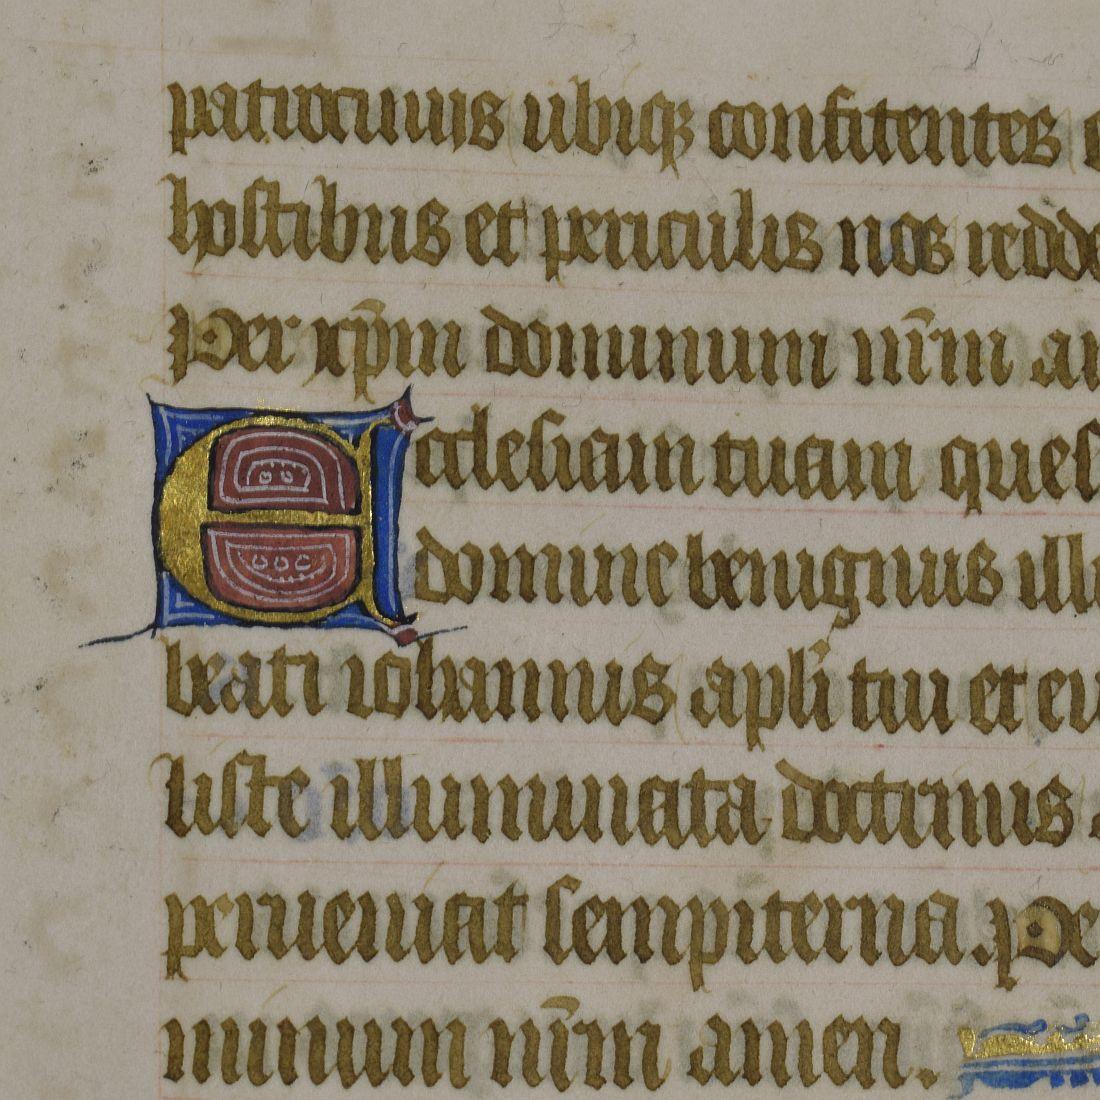 patrocinijs ubiq; confitentes
hostibus et periculis nos redde
Per xp̄m dominum nr̄m am
Ecclesiam tuam ques
domine benignus illu
beati iohannis apl'i tui et eu
liste illuminata doctrinis
perueniat sempiterna. Pe
minum nr̄m amen.